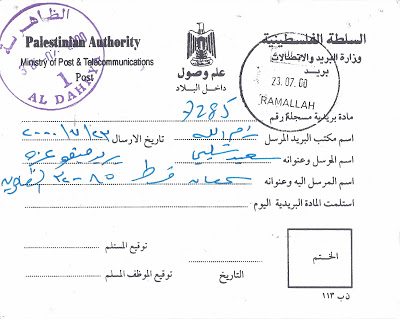 السلطة الفلسطينية
وزارة البريد والاتصالات
بريد
Palestinian Authority
Ministry of Post & Telecommunications
Post
علم وصول
داخل البلاد
الظاهرية
1
AL DAHAR
23.07.00
RAMALLAH
مادة بريدية مسجلة رقم 7285
اسم مكتب البريد المرسل رام الله تاريخ الارسال ٢٠٠٠/٧/٢٣
اسم الموسل وعنوانه سعيد
اسم المرسل اليه وعنوانه
استلمت المادة البريدية اليوم
توقيع المستلم
توقيع الموظف المسلم
التاريخ
الختم
ن ب ١١٣